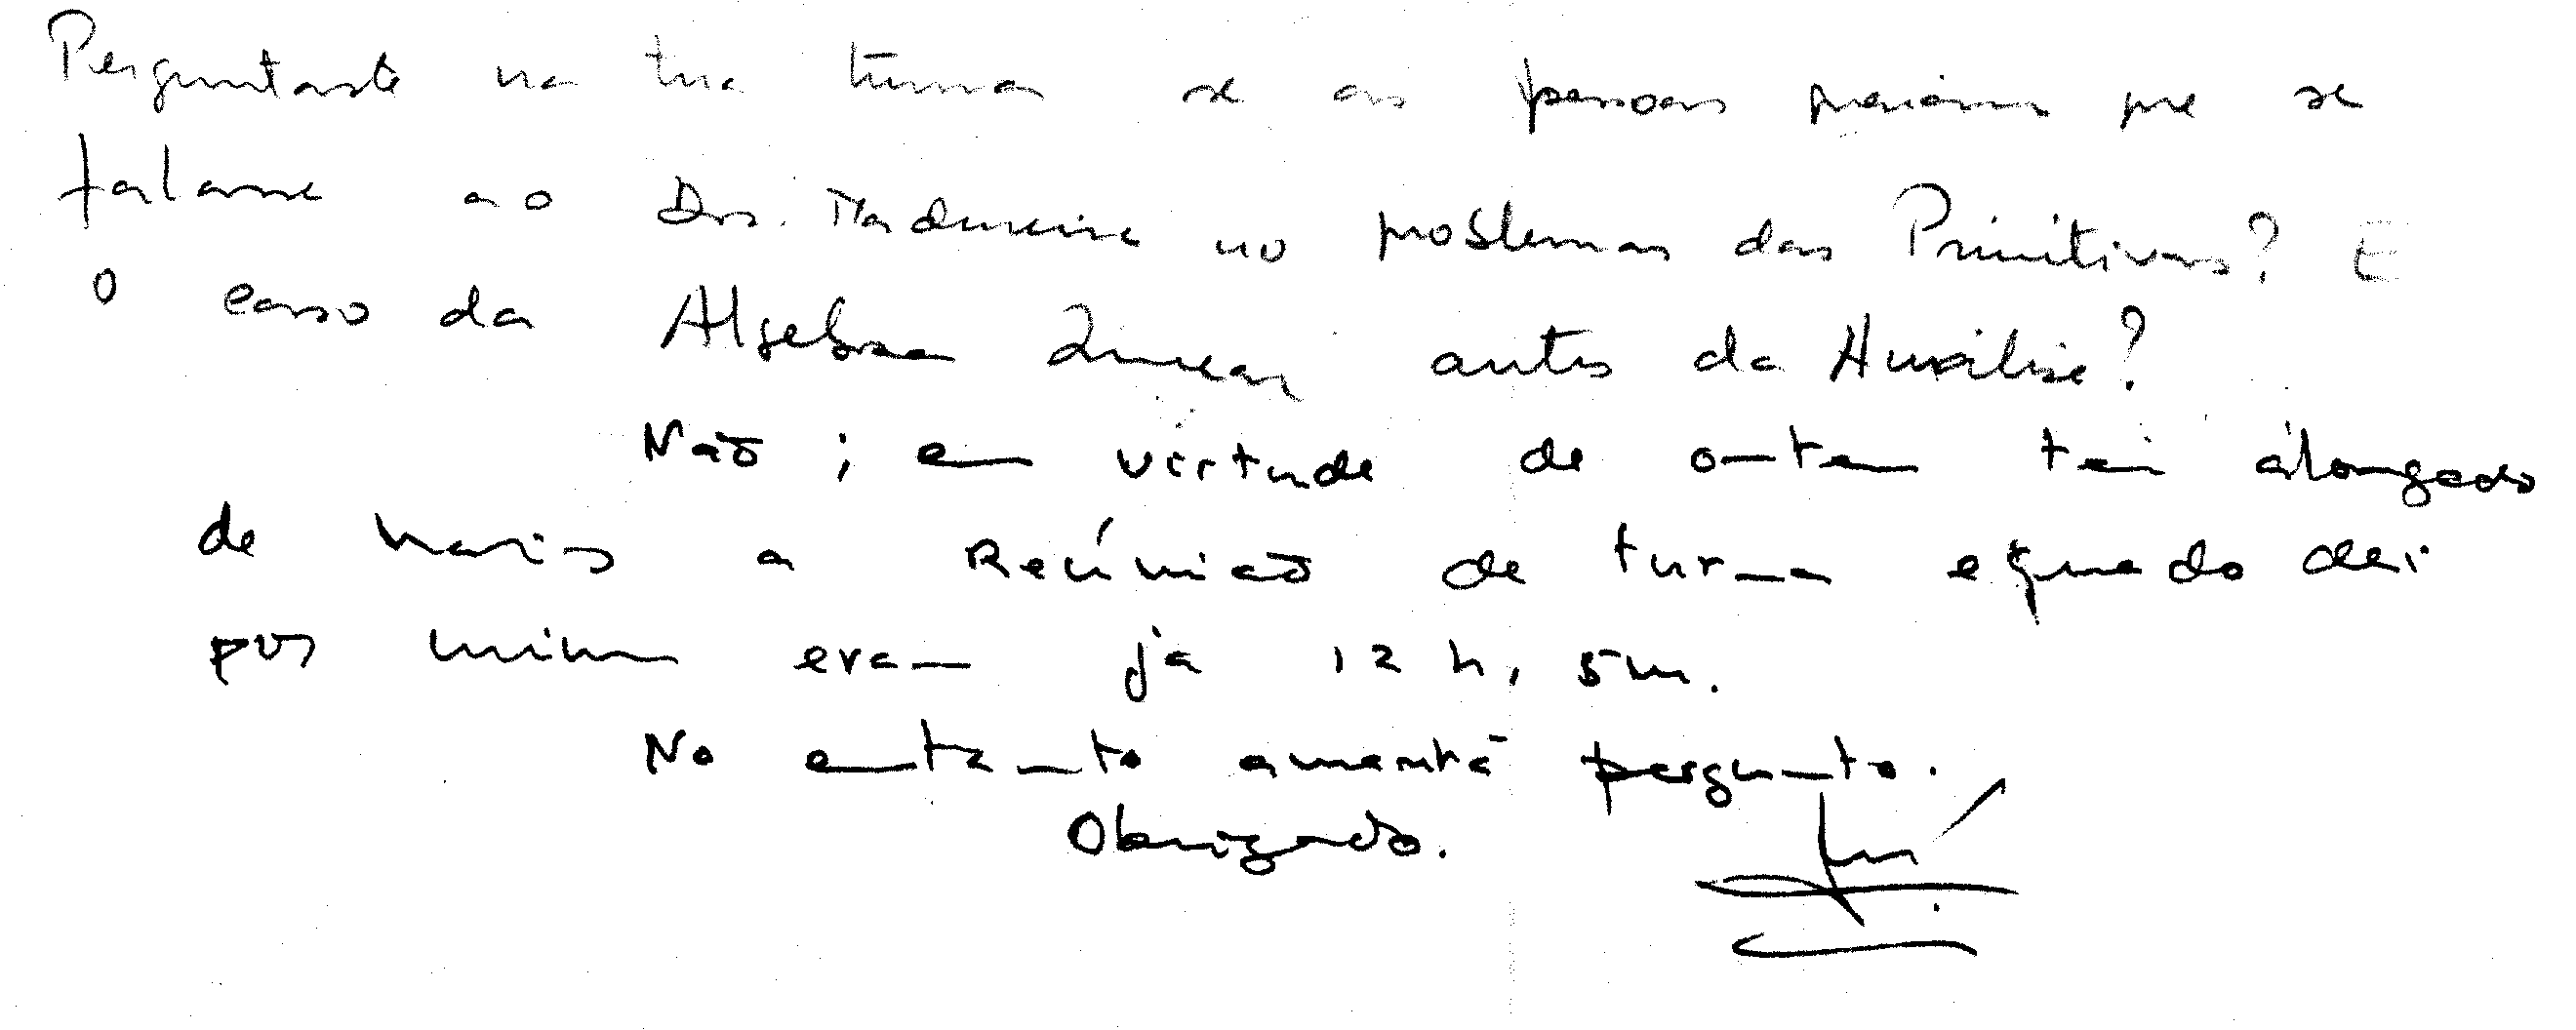 Perguntaste na tua turma se as pessoas queriam que se
falasse ao Drs. Madureira no problemas das Primitivas? E
o caso da Algebra Linear antes da Análise?
Não; em virtude de ontem ter alongado
de mais a Reúnião de turma e quando dei
por mim eram já 12 h, 5m.
No entanto amanhã pergunto.
Obrigado.